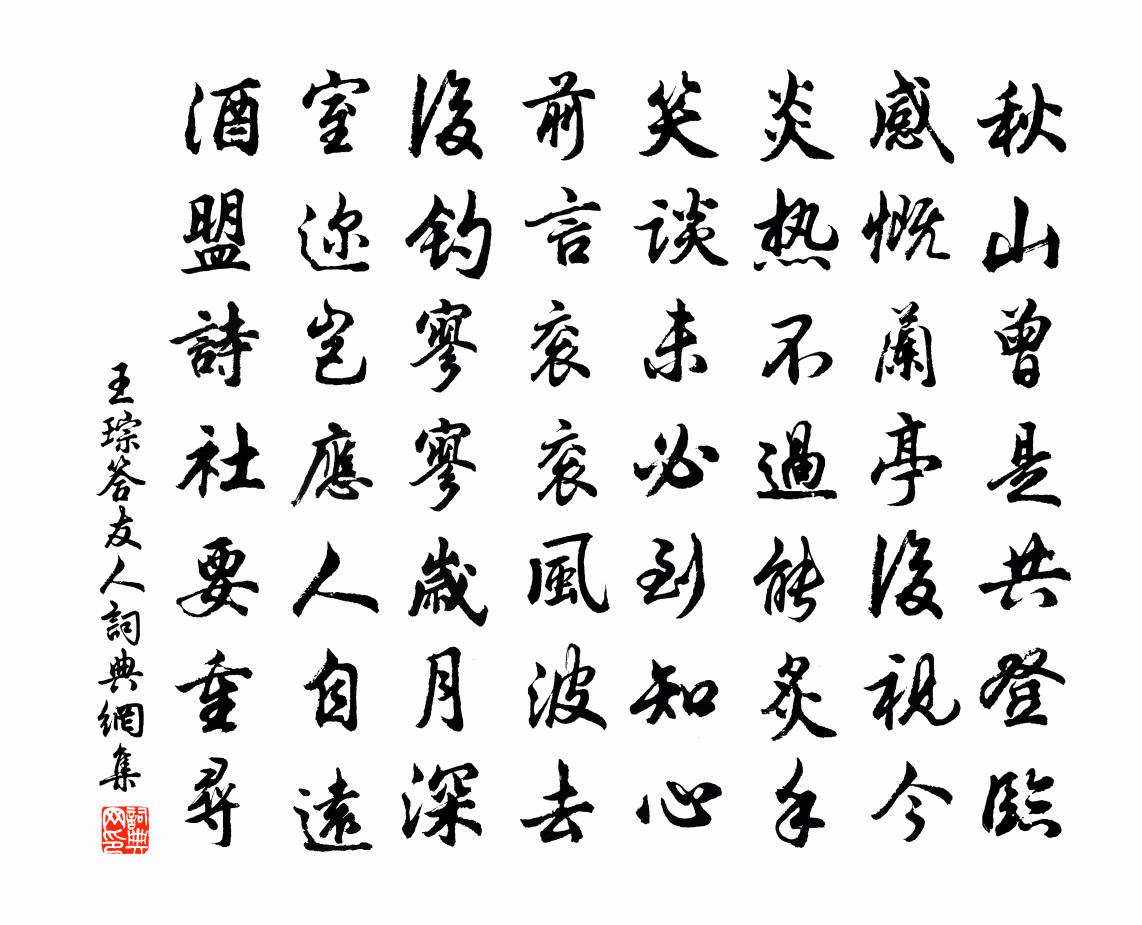 秋山曾是共登臨
感慨蘭亭後視今
炎热不過能炙手
笑談未必到知心
前言衮衮風波去
後釣寥寥歲月深
室迩岂應人自遠
酒盟詩社要重尋
王琮答友人詞典網集
詞典网印